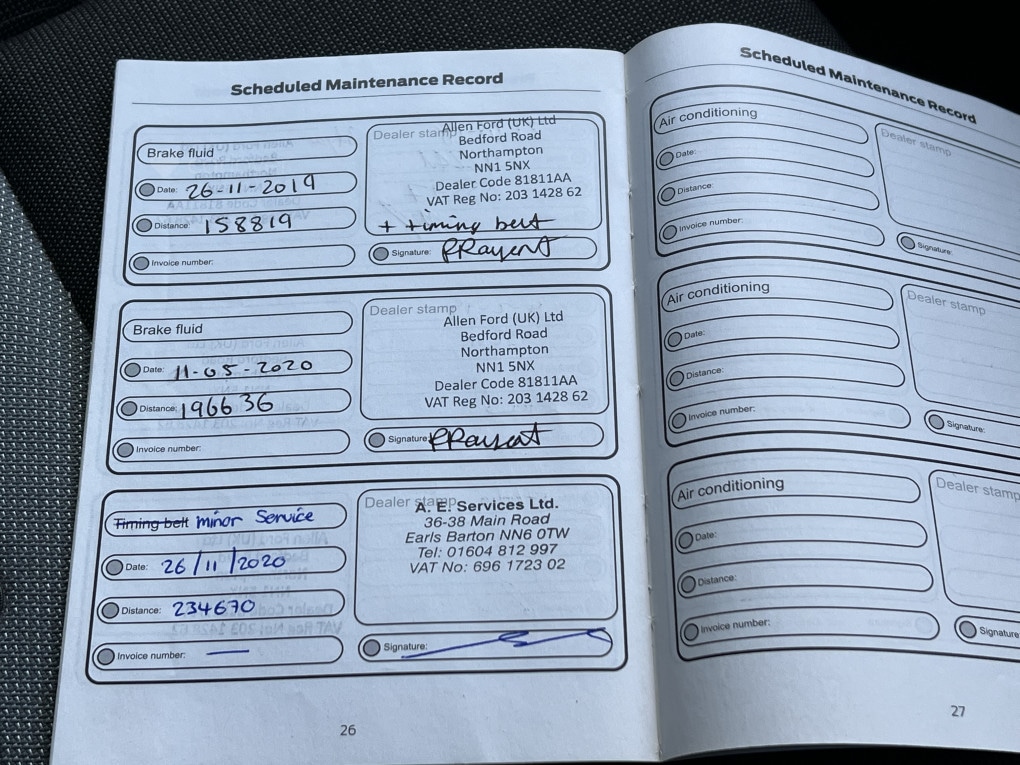 Scheduled Maintenance Record
Brake fluid
Date: 26-11-2019
Distance: 158819
Invoice number:
Dealer stamp
Allen Ford (UK) Ltd
Bedford Road
Northampton
NN1 5NX
Dealer Code 81811AA
VAT Reg No: 203 1428 62
+ timing belt
Signature:
Brake fluid
Date: 11-05-2020
Distance: 196636
Invoice number:
Dealer stamp
Allen Ford (UK) Ltd
Bedford Road
Northampton
NN1 5NX
Dealer Code 81811AA
VAT Reg No: 203 1428 62
Signature:
Timing belt minor Service
Date: 26/11/2020
Distance: 234670
Invoice number: —
Dealer stamp
A. E. Services Ltd.
36-38 Main Road
Earls Barton NN6 0TW
Tel: 01604 812 997
VAT No: 696 1723 02
Signature:
26
Scheduled Maintenance Record
Air conditioning
Date:
Distance:
Invoice number:
Dealer stamp
Signature:
Air conditioning
Date:
Distance:
Invoice number:
Dealer stamp
Signature:
Air conditioning
Date:
Distance:
Invoice number:
Dealer stamp
Signature:
27